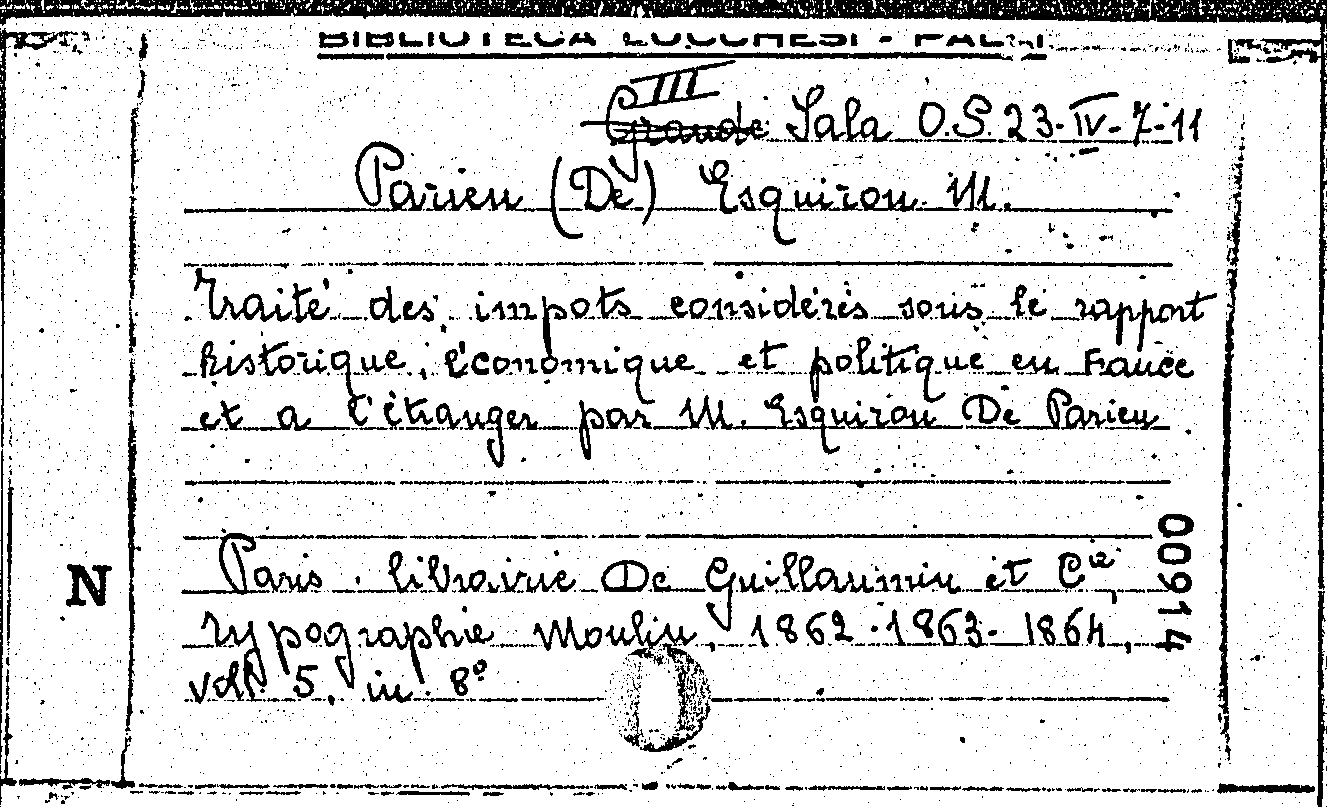 BIBLIOTECA LUCCHESI - PALLI
III
Grande Sala O.S. 23-IV-7-11
Parieu (De) Esquirou M.
Traité des impots considérés sous le rapport
historique, économique et politique en France
et a l'étranger par M. Esquirou De Parieu
00914
N
Paris. librairie De Guillaumin et Cie,
typographie Moulin, 1862-1863-1864,
voll. 5, in 8º